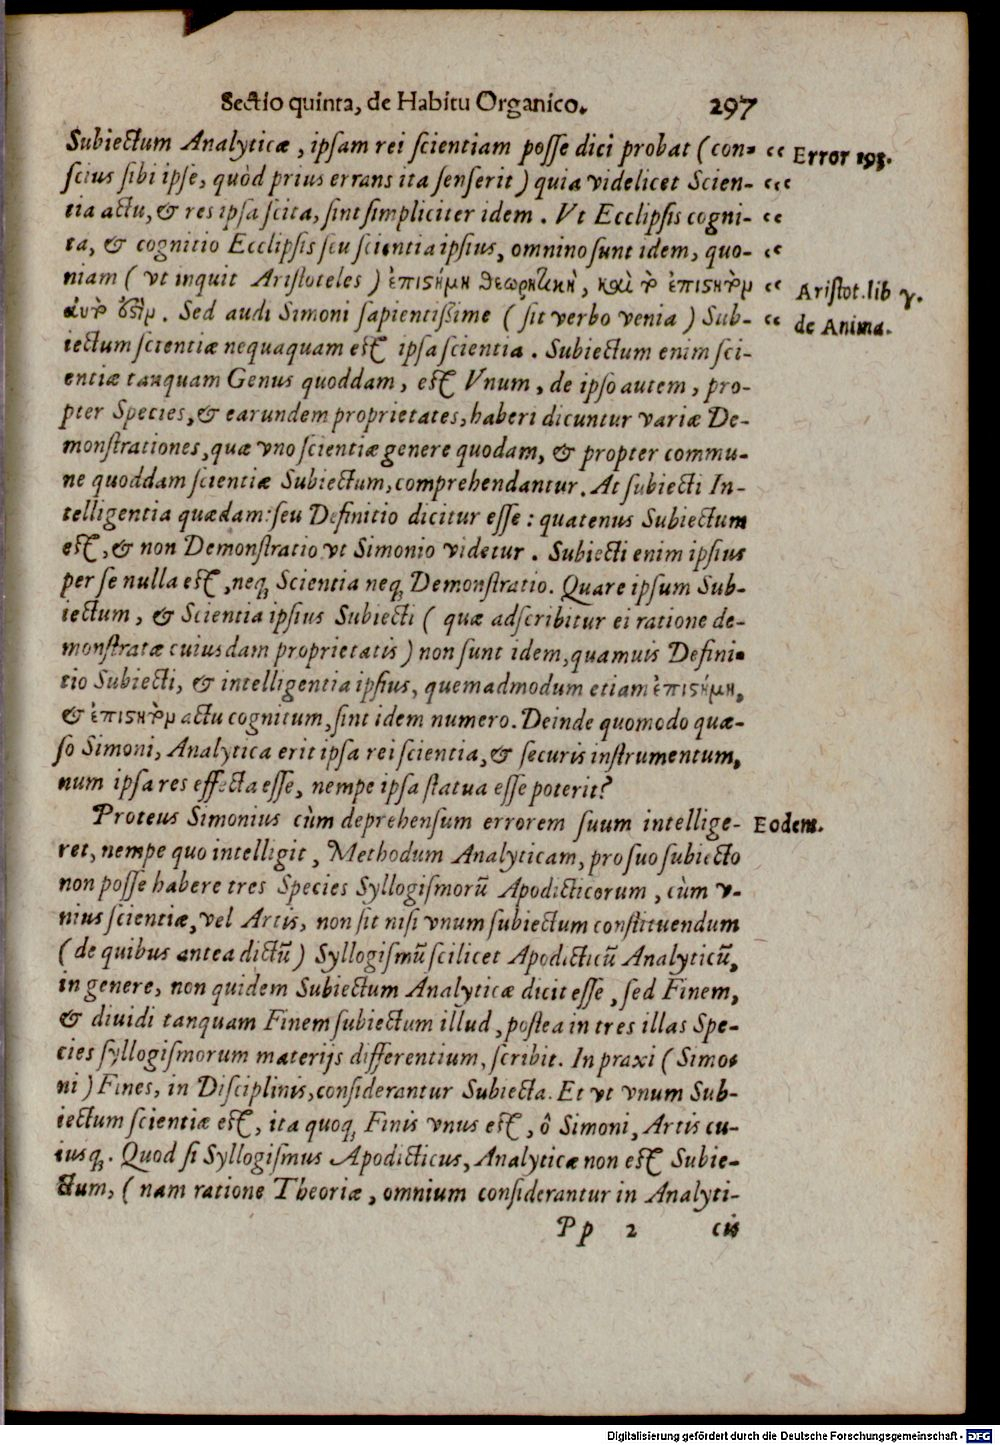 Sectio quinta, de Habitu Organico. 297
Subiectum Analyticæ, ipsam rei scientiam posse dici probat (con- “ Error 193.
scius sibi ipse, quòd prius errans ita senserit) quia videlicet Scien- “‘
tia actu, & res ipsa scita, sint simpliciter idem. Vt Ecclipsis cogni- “
ta, & cognitio Ecclipsis seu scientia ipsius, omnino sunt idem, quo- “
niam (vt inquit Aristoteles) ἐπιστήμη θεωρητικὴ, καὶ τὸ ἐπιστητὸν “ Aristot. lib γ.
αὐτό ὅστιν. Sed audi Simoni sapientissime (sit verbo venia) Sub- “ de Anima.
iectum scientiæ nequaquam est ipsa scientia. Subiectum enim sci-
entiæ tanquam Genus quoddam, est Vnum, de ipso autem, pro-
pter Species, & earundem proprietates, haberi dicuntur variæ De-
monstrationes, quæ vno scientiæ genere quodam, & propter commu-
ne quoddam scientiæ Subiectum, comprehendantur. At subiecti In-
telligentia quædam: seu Definitio dicitur esse: quatenus Subiectum
est, & non Demonstratio vt Simonio videtur. Subiecti enim ipsius
per se nulla est, neq; Scientia neq; Demonstratio. Quare ipsum Sub-
iectum, & Scientia ipsius Subiecti (quæ adscribitur ei ratione de-
monstratæ cuiusdam proprietatis) non sunt idem, quamuis Defini-
tio Subiecti, & intelligentia ipsius, quemadmodum etiam ἐπιστήμη,
& ἐπιστητὸν actu cognitum, sint idem numero. Deinde quomodo quæ-
so Simoni, Analytica erit ipsa rei scientia, & securis instrumentum,
num ipsa res effecta esse, nempe ipsa statua esse poterit?
Proteus Simonius cùm deprehensum errorem suum intellige- Eodem.
ret, nempe quo intelligit, Methodum Analyticam, pro suo subiecto
non posse habere tres Species Syllogismorũ Apodicticorum, cùm v-
nius scientiæ, vel Artis, non sit nisi vnum subiectum constituendum
(de quibus antea dictũ) Syllogismũ scilicet Apodicticũ Analyticũ,
in genere, non quidem Subiectum Analyticæ dicit esse, sed Finem,
& diuidi tanquam Finem subiectum illud, postea in tres illas Spe-
cies syllogismorum materijs differentium, scribit. In praxi (Simo-
ni) Fines, in Disciplinis, considerantur Subiecta. Et vt vnum Sub-
iectum scientiæ est, ita quoq; Finis vnus est, ô Simoni, Artis cu-
iusq;. Quod si Syllogismus Apodicticus, Analyticæ non est Subie-
ctum, (nam ratione Theoriæ, omnium considerantur in Analyti-
Pp 2 cis
Digitalisierung gefördert durch die Deutsche Forschungsgemeinschaft - DFG